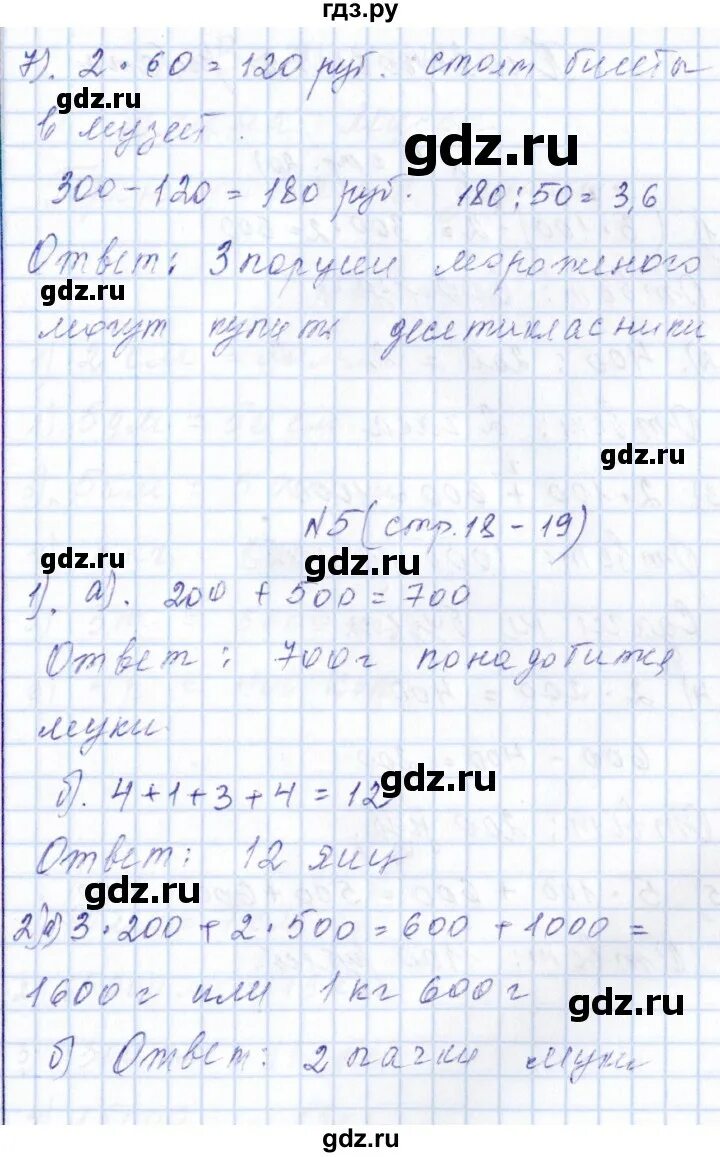 гдз.ру
7). 2 · 60 = 120 руб. стоят билеты
gdz.ru
в музей.
gdz.ru
300 - 120 = 180 руб. 180 : 50 = 3,6
Ответ: 3 порции мороженого
gdz.ru
могут купить десятикласники
gdz.ru
N5 (стр. 18 - 19)
gdz.ru
gdz.ru
1). а). 200 + 500 = 700
Ответ: 700 г понадобится
муки
gdz.ru
б). 4 + 1 + 3 + 4 = 12
Ответ: 12 яиц
gdz.ru
2) а) 3 · 200 + 2 · 500 = 600 + 1000 =
1600 г или 1 кг 600 г
gdz.ru
б) Ответ: 2 пачки муки
gdz.ru